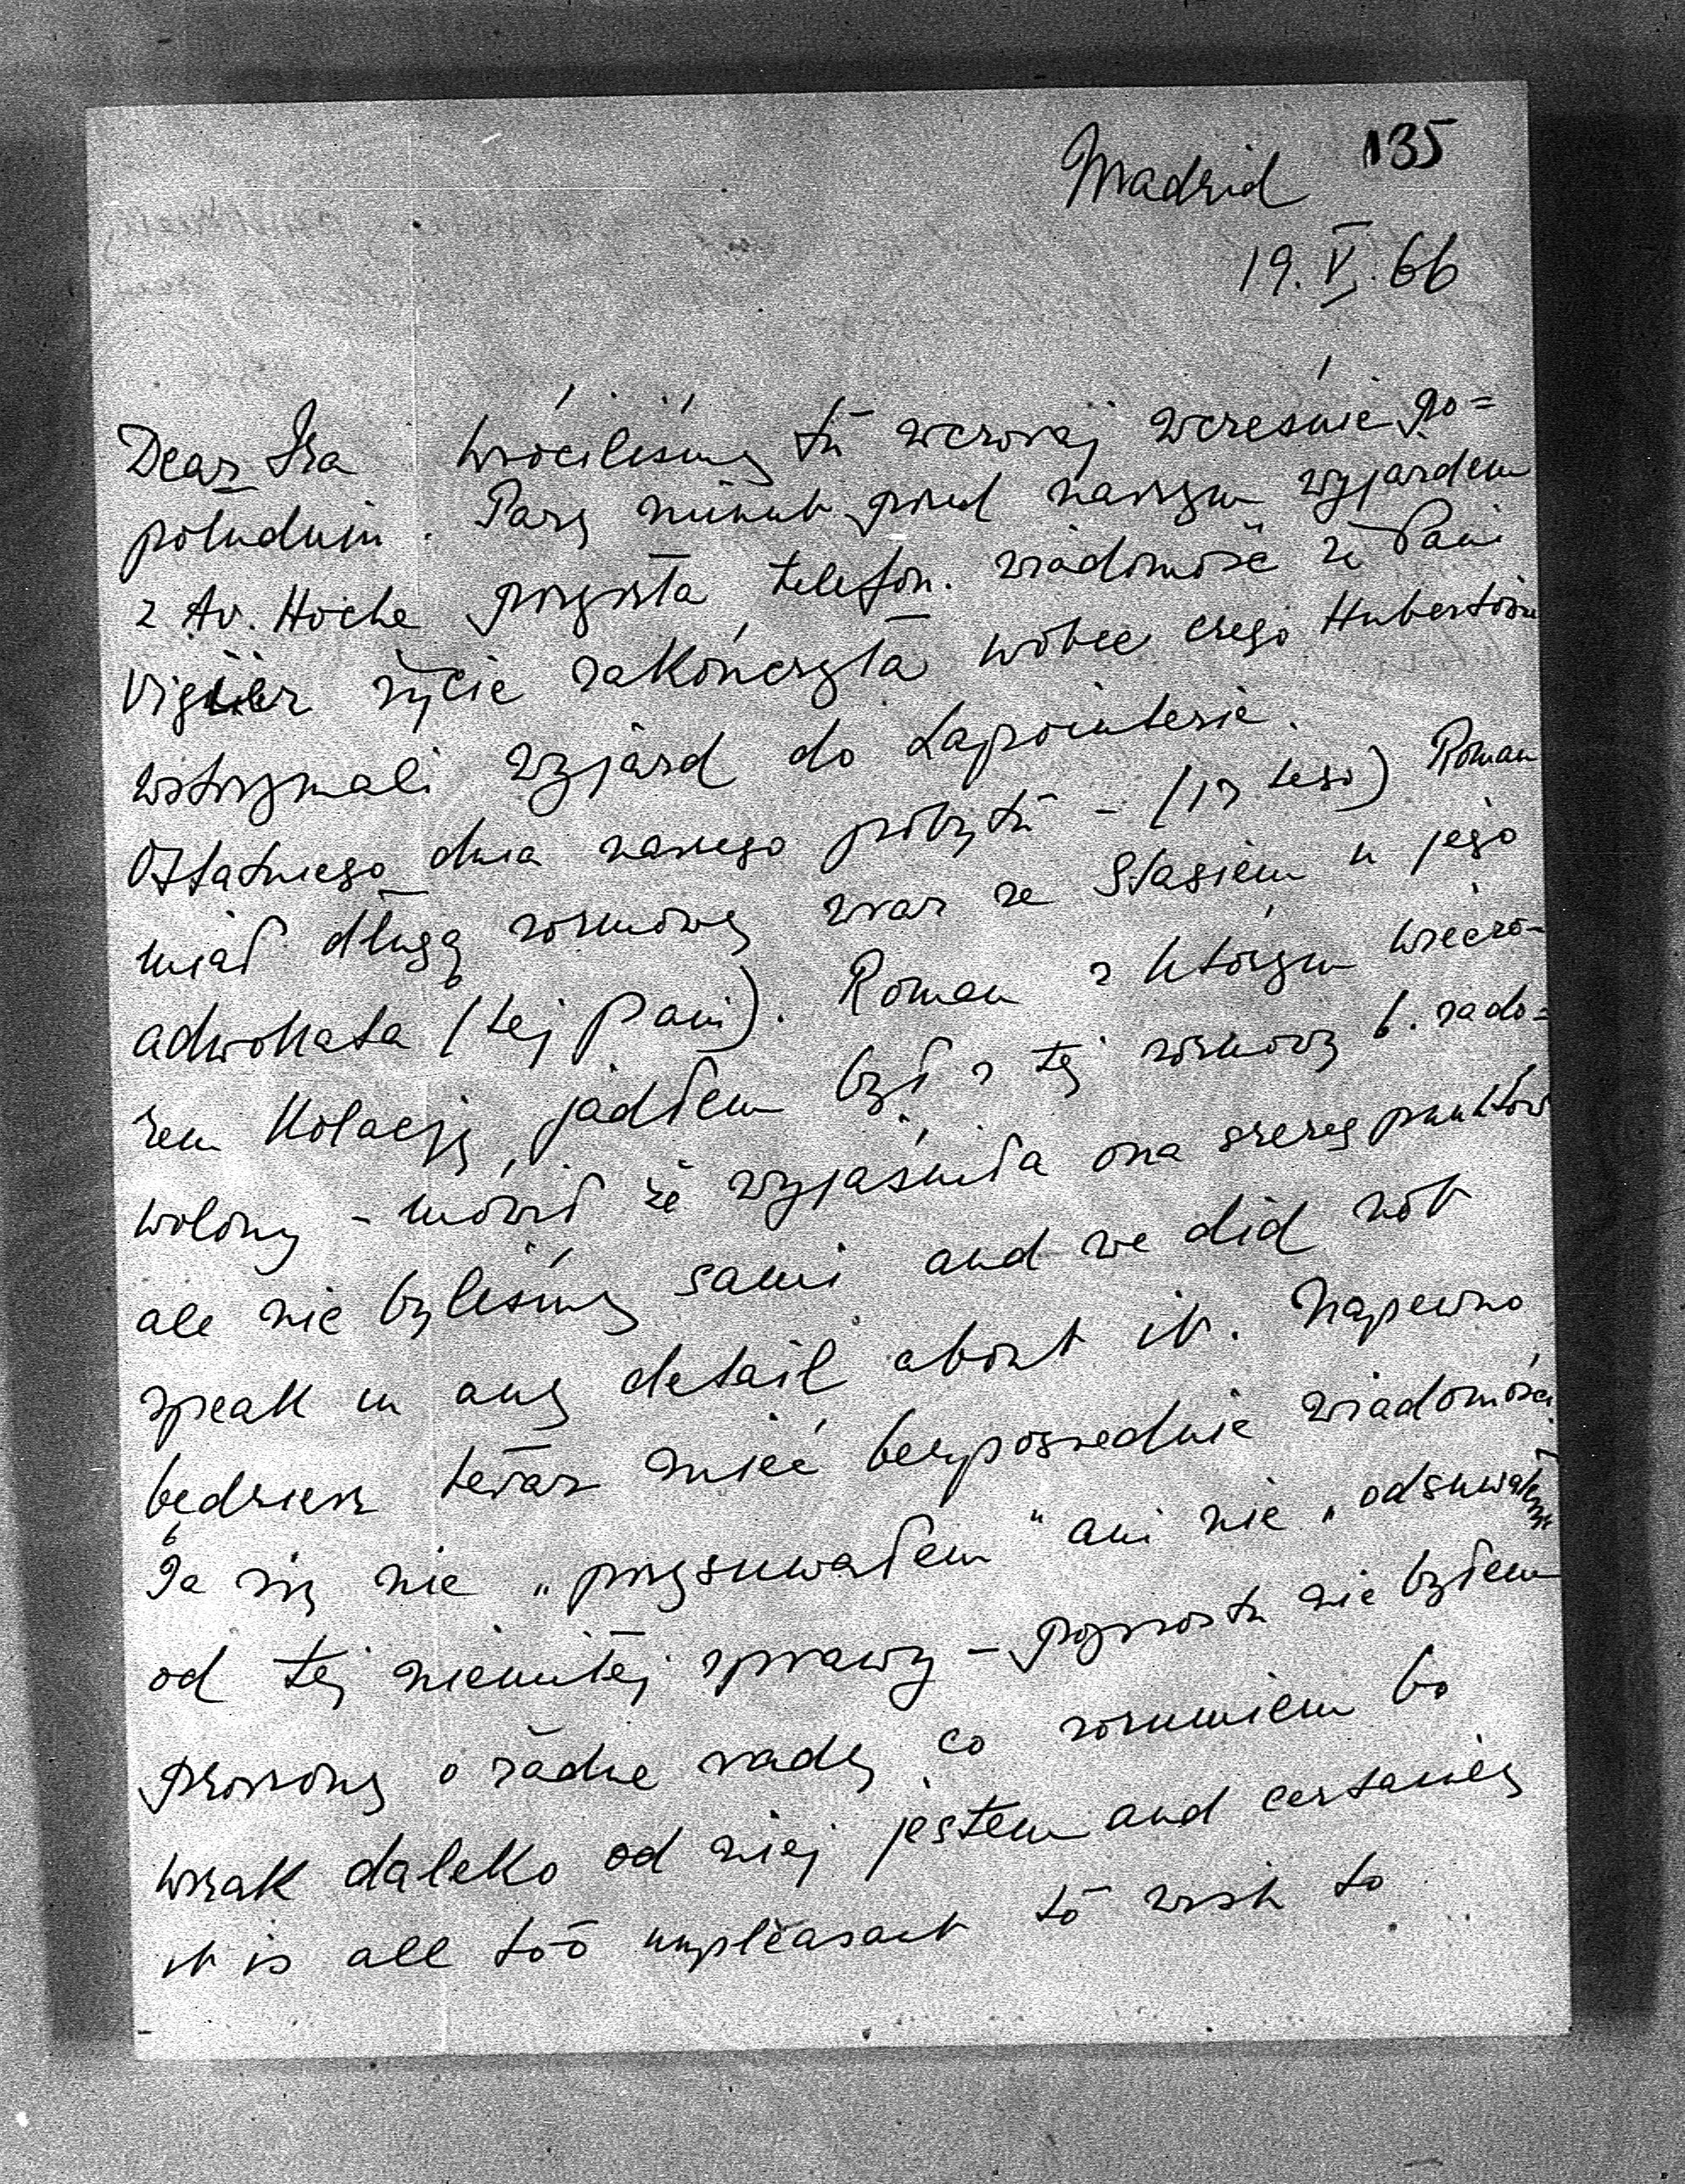 135
Madrid
19.V.66
Dear Iza wróciliśmy tu wczoraj wcześnie po=
południu. Parę minut przed naszym wyjazdem
z Av. Hoche przyszła telefon. wiadomość że Pani
Vigier życie zakończyła wobec czego Hubertóstwo
wstrzymali wyjazd do Lapointerie.
Ostatniego dnia naszego pobytu - (17 tego) Roman
miał długą rozmowę wraz ze Stasiem u jego
adwokata (tej Pani). Roman z którym wieczo-
rem kolację jadłem był z tej rozmowy b. zado=
wolony - mówił że wyjaśniła ona szereg punktów
ale nie byliśmy sami and we did not
speak in any detail about it. Napewno
będziesz teraz mieć bezpośrednie wiadomości.
Ja się nie „przysuwałem" ani nie „odsuwałem"
od tej niemiłej sprawy - poprostu nie byłem
proszony o żadne rady co rozumiem bo
wszak daleko od niej jestem and certainly
it is all too unpleasant to wish to